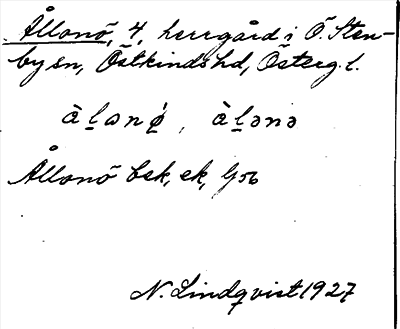 Ållonö, 4, herrgård i Ö. Sten-
by sn, Östkinds hd, Österg. l.
àl̲ənǿ, àl̲ənə
Ållonö bek, ek,
N. Lindqvist 1927